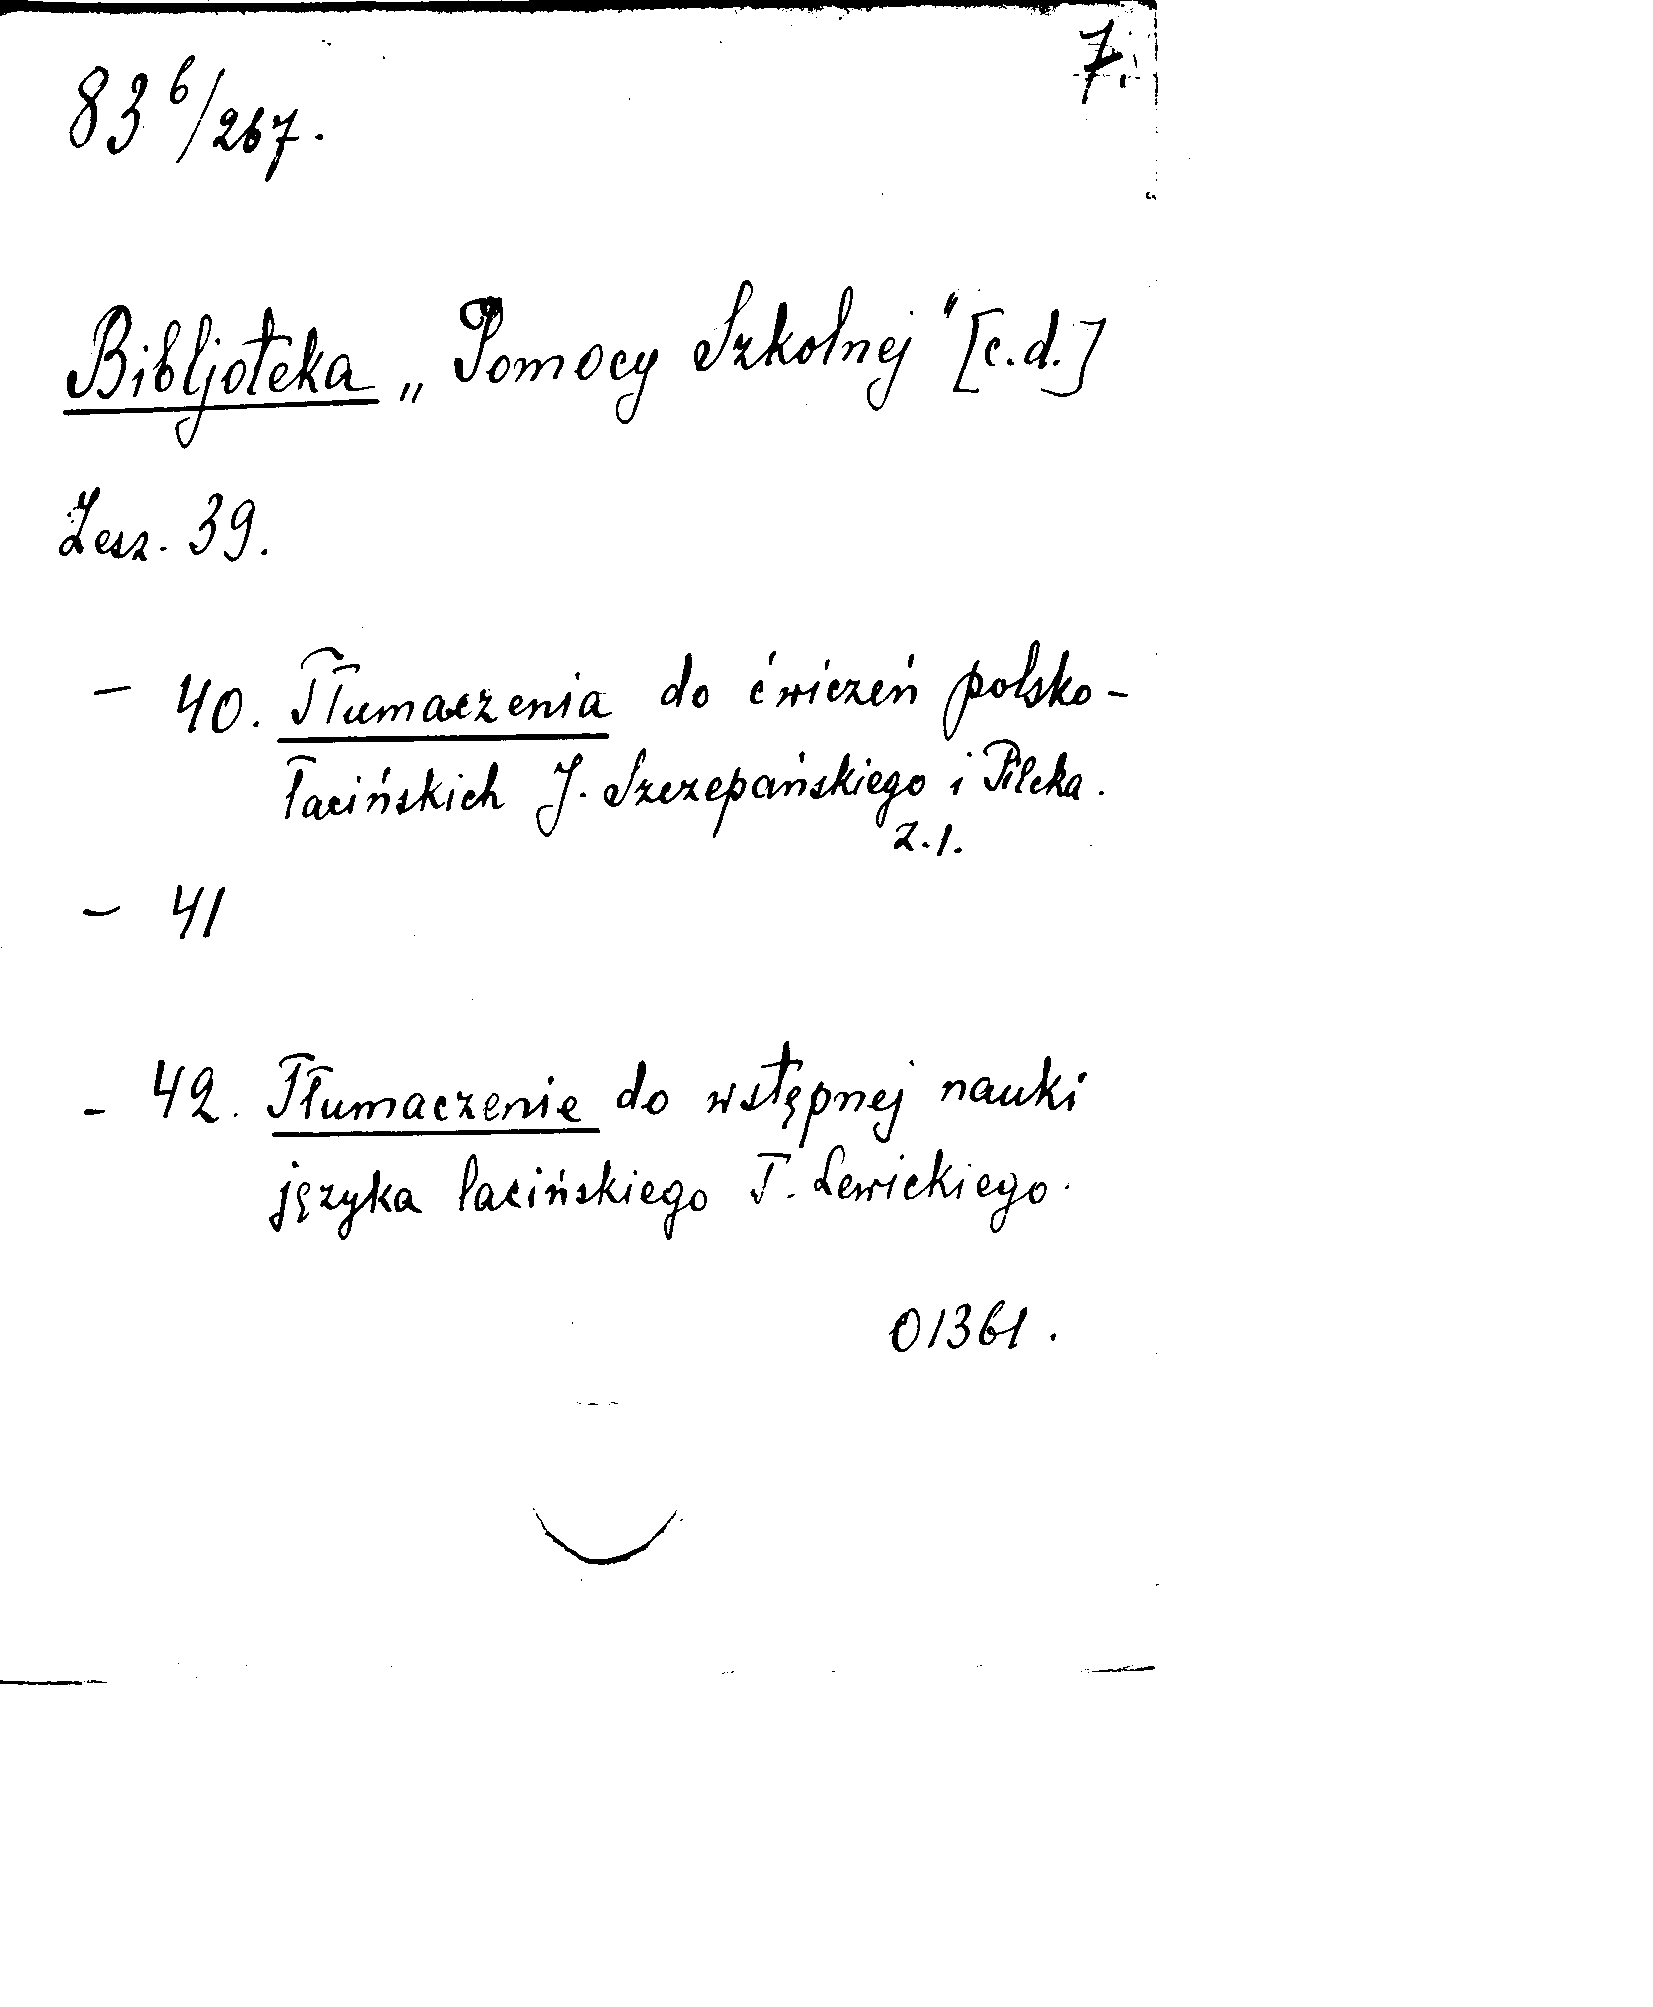 7.
83 6/267.
Bibljoteka „Pomocy Szkolnej" [c.d.]
Zesz. 39.
– 40. Tłumaczenia do ćwiczeń polsko-
łacińskich J. Szczepańskiego i Pilcha.
z.1.
– 41
– 42. Tłumaczenie do wstępnej nauki
języka łacińskiego T. Lewickiego.
01361.